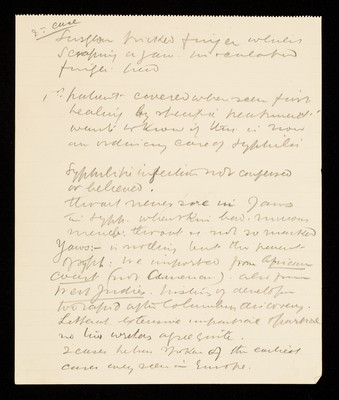 2nd case
Surgeon pricked finger whilst
scraping a yaw. inoculated
finger here
1st patient covered when seen first
healing by specific treatment
wants to know if this is now
an ordinary case of Syphilis
Syphilitic infection not confessed
or believed.
throat never sore in Yaws
in Syph. when skin bad. mucous
memb. throat is not so marked
Yaws:- is nothing but the parent
of syph: be imported from African
coast (not America). also from
West Indies. of develop
too rapid after Columbus discovery.
extensive
no two writers agree quite.
2 cases here spoken of the earliest
cases ever seen in Europe.